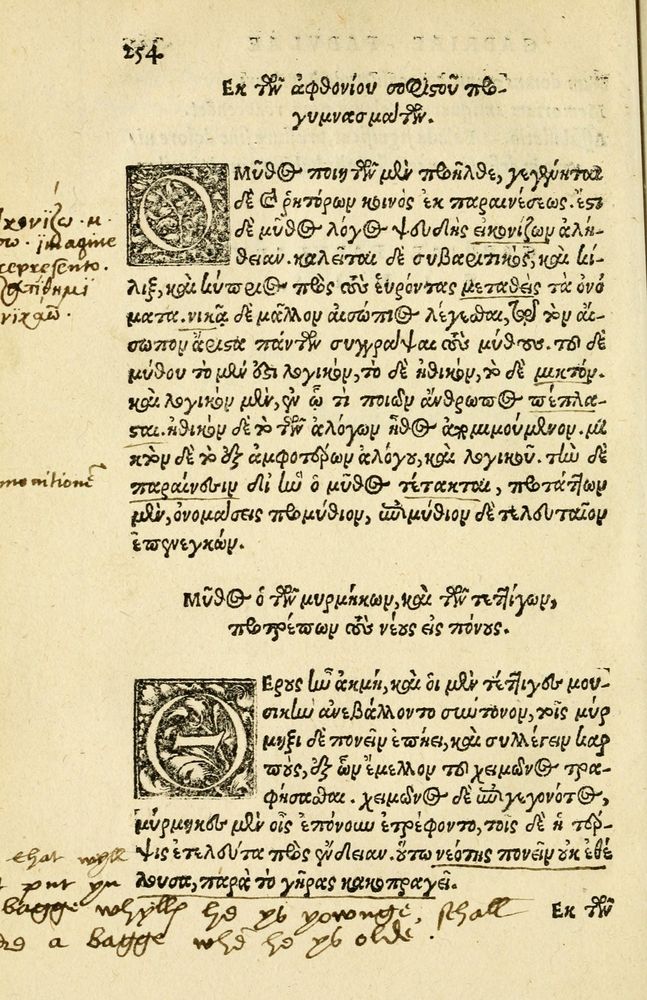 254
Ἐκ τῶν ἀφθονίου σοφιστοῦ προ-
γυμνασμάτων.
Ὁ ΜΥ͂ΘΟς ποιητῶν μὲν προῆλθε, γεγένηται
δὲ καὶ ῥητόρων κοινὸς ἐκ παραινέσεως. ἔστι
δὲ μῦθος λόγος ψευδὴς εἰκονίζων ἀλή-
θειαν. καλεῖται δὲ συβαριτικὸς, καὶ κί-
λιξ, καὶ κύπριος πρὸς τοὺς εὑρόντας μεταθεὶς τὰ ὀνό
ματα. νικᾷ δὲ μᾶλλον αἰσώπιος λέγεσθαι, τῷ τὸν αἴ-
σωπον ἄριστα πάντων συγγράψαι τοὺς μύθους. τοῦ δὲ
μύθου τὸ μέν ἐστι λογικὸν, τὸ δὲ ἠθικὸν, τὸ δὲ μικτόν.
καὶ λογικὸν μὲν, ἐν ᾧ τὶ ποιῶν ἄνθρωπος πέπλα-
σται. ἠθικὸν δὲ τὸ τῶν ἀλόγων ἦθος ἀπομιμούμενον. μι
κτὸν δὲ τὸ ἐξ ἀμφοτέρων ἀλόγου, καὶ λογικοῦ. τὴν δὲ
παραίνεσιν δι' ἣν ὁ μῦθος τέτακται, προτάττων
μὲν, ὀνομάσεις προμύθιον, ἐπιμύθιον δὲ τελευταῖον
ἐπενεγκών.
Μῦθος ὁ τῶν μυρμήκων, καὶ τῶν τεττίγων,
προτρέπων τοὺς νέους εἰς πόνους.
ΘΕΡΟΥΣ ἦν ἀκμὴ, καὶ οἱ μὲν τέττιγες μου-
σικὴν ἀνεβάλλοντο σύντονον, τοῖς μύρ
μηξι δὲ πονεῖν ἐπῄει, καὶ συλλέγειν καρ
ποὺς, ἐξ ὧν ἔμελλον τοῦ χειμῶνος τρα-
φήσεσθαι. χειμῶνος δὲ ἐπιγεγονότος,
μύρμηκες μὲν οἷς ἐπόνουν ἐτρέφοντο, τοῖς δὲ ἡ τέρ-
ψις ἐτελεύτα πρὸς ἔνδειαν. οὕτω νεότης πονεῖν οὐκ ἐθέ
λουσα, παρὰ τὸ γῆρας κακοπραγεῖ.
Ἐκ τῶν
imagine
represento.
monitionē
that wyll
t put yn
bagge whyll he ys yownge, shall
a bagge whē he ys olde.